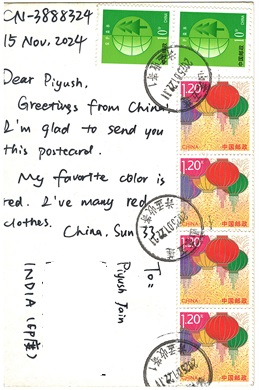 CN-3888324
15 Nov. 2024
Dear Piyush,
Greetings from China,
I'm glad to send you
this postcard.
My favorite color is
red. I've many red
clothes.
China, Sun 33
To:
Piyush Jain
INDIA (印度)
10分
中国邮政
CHINA
10分
中国邮政
CHINA
1.20元
CHINA 中国邮政
1.20元
CHINA 中国邮政
1.20元
CHINA 中国邮政
1.20元
CHINA 中国邮政